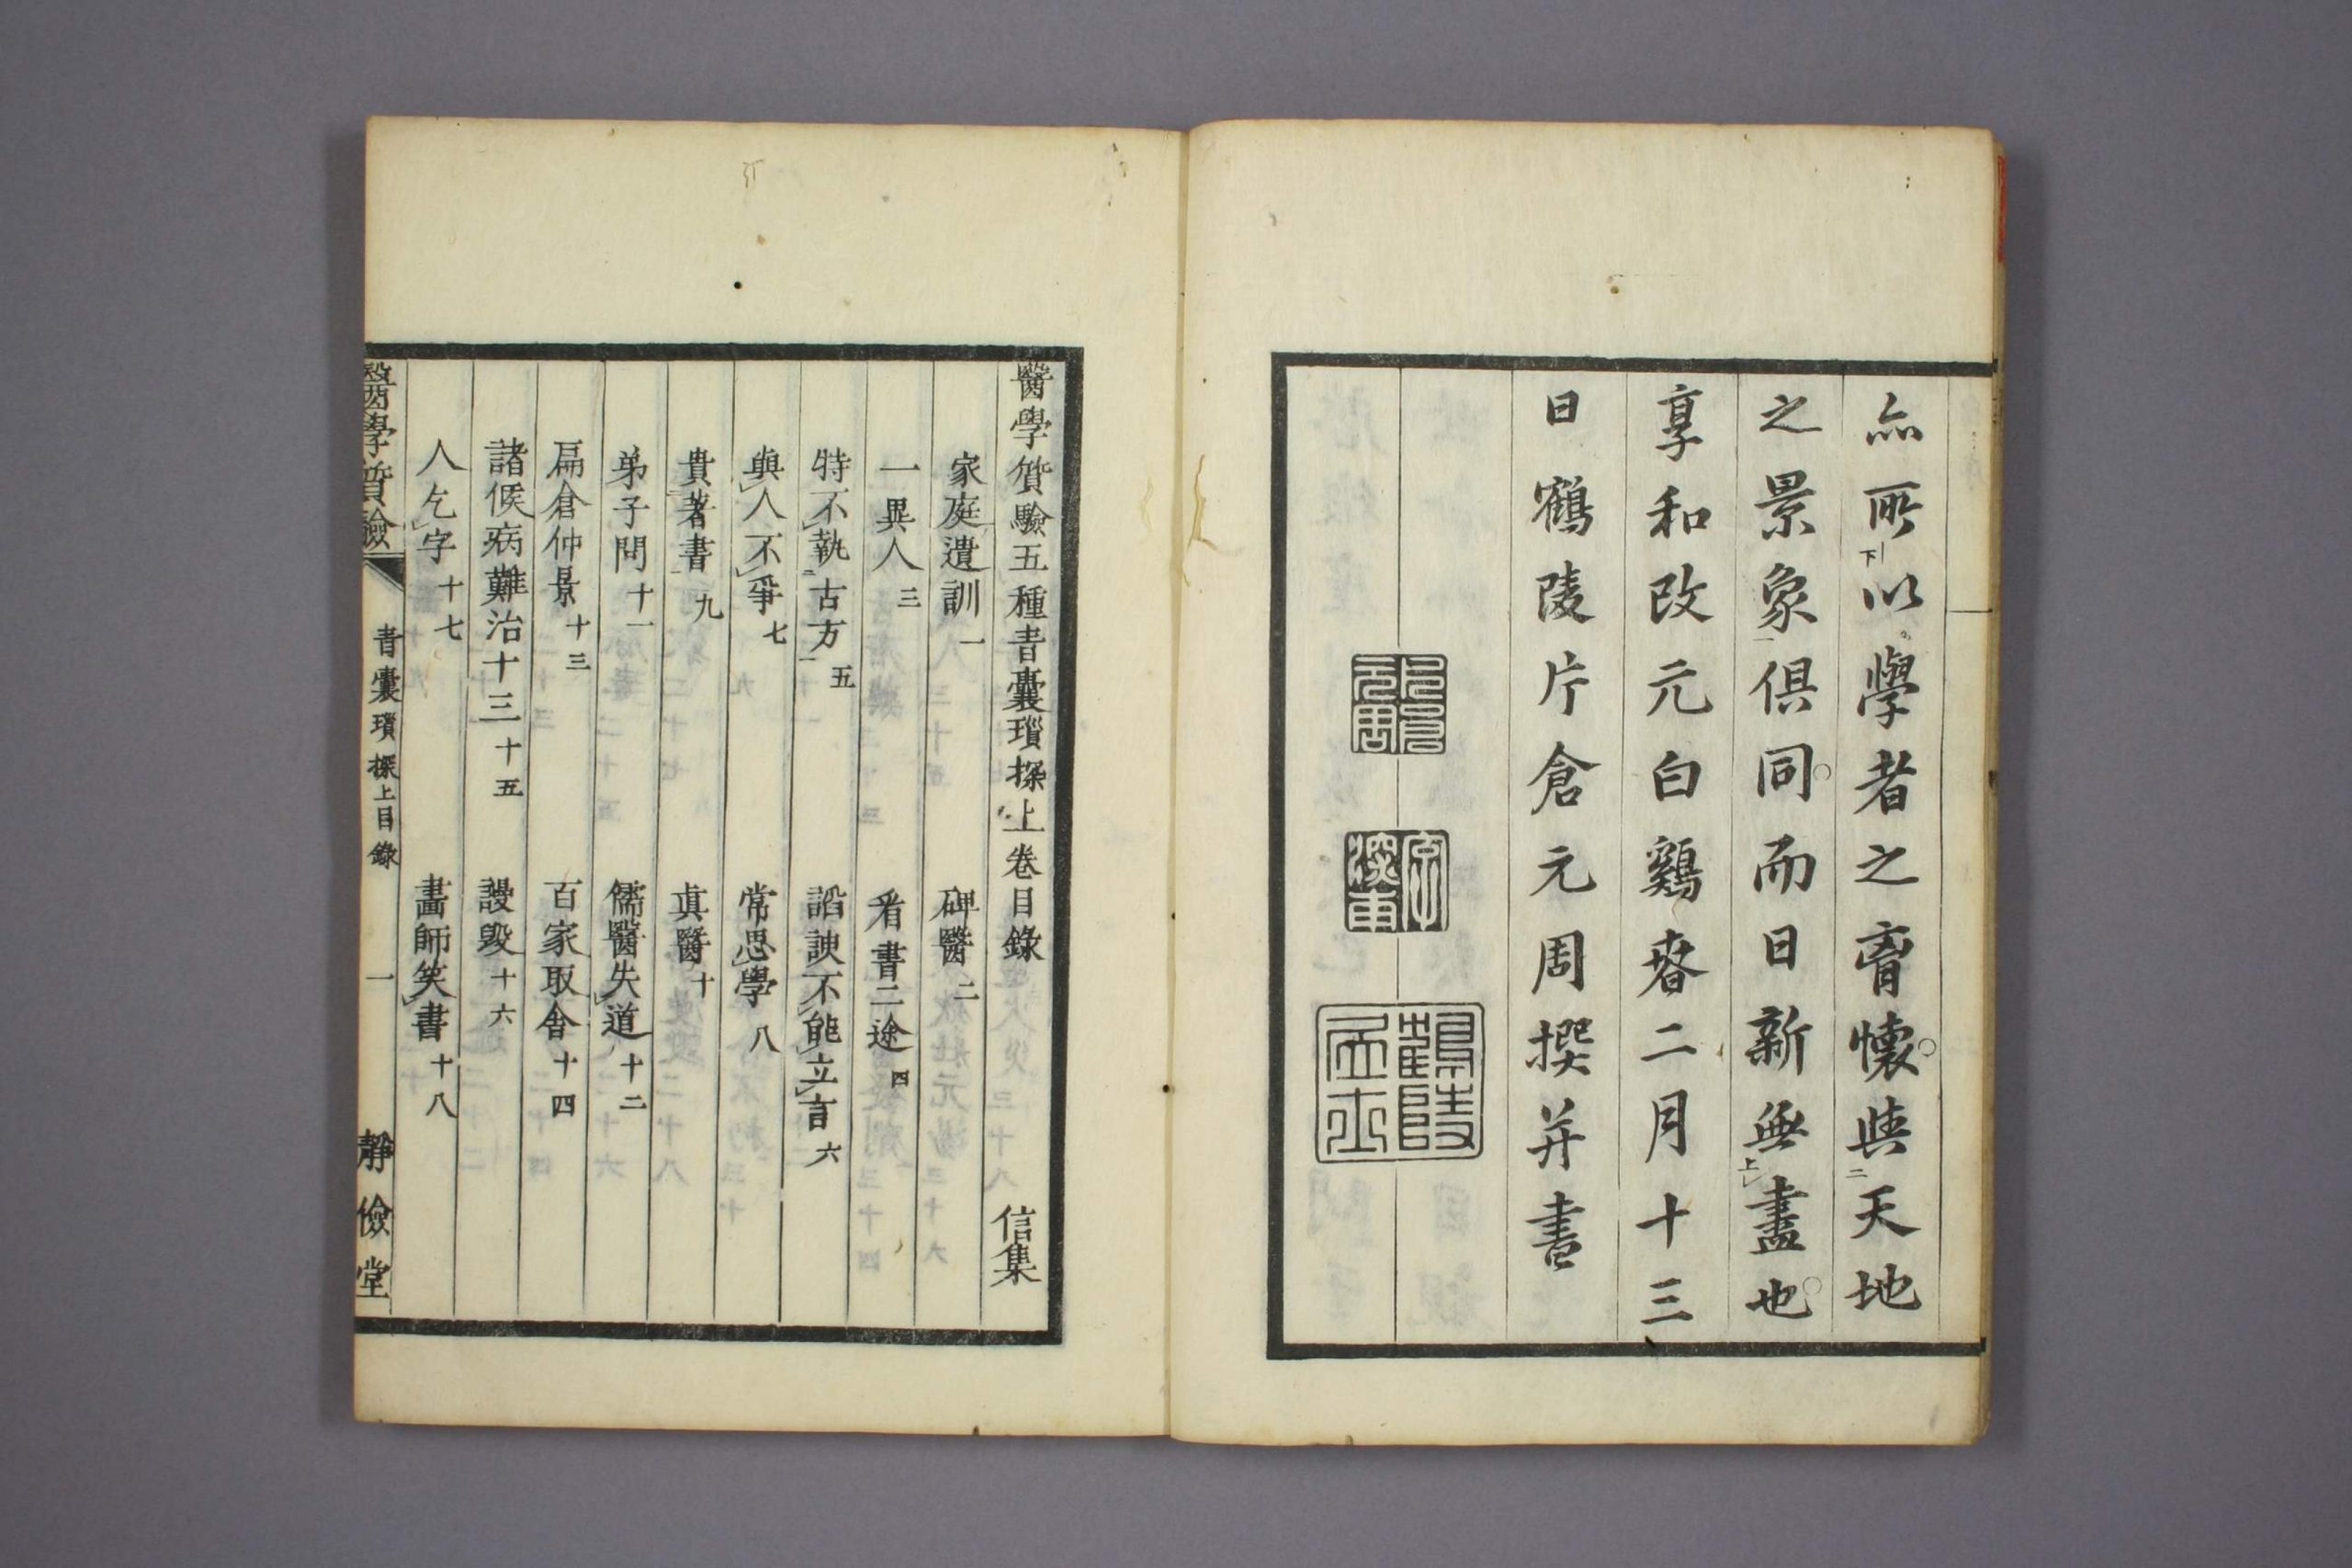 亦所以學者之胷懷與天地
之景象俱同而日新無盡也
享和改元白鷄春二月十三
日鶴陵片倉元周撰并書
片倉元周
字深甫
鶴陵
醫學質驗五種青囊瑣探上卷目錄 信集
家庭遺訓 一 碑醫 二
一異人 三 看書二途 四
特不執古方 五 諂諛不能立言 六
與人不爭 七 常思學 八
貴著書 九 真醫 十
弟子問 十一 儒醫失道 十二
扁倉仲景 十三 百家取舍 十四
諸候病難治十三 十五 謾毀 十六
人乞字 十七 畫師笑書 十八
醫學質驗 青囊瑣探上目錄 一 靜儉堂